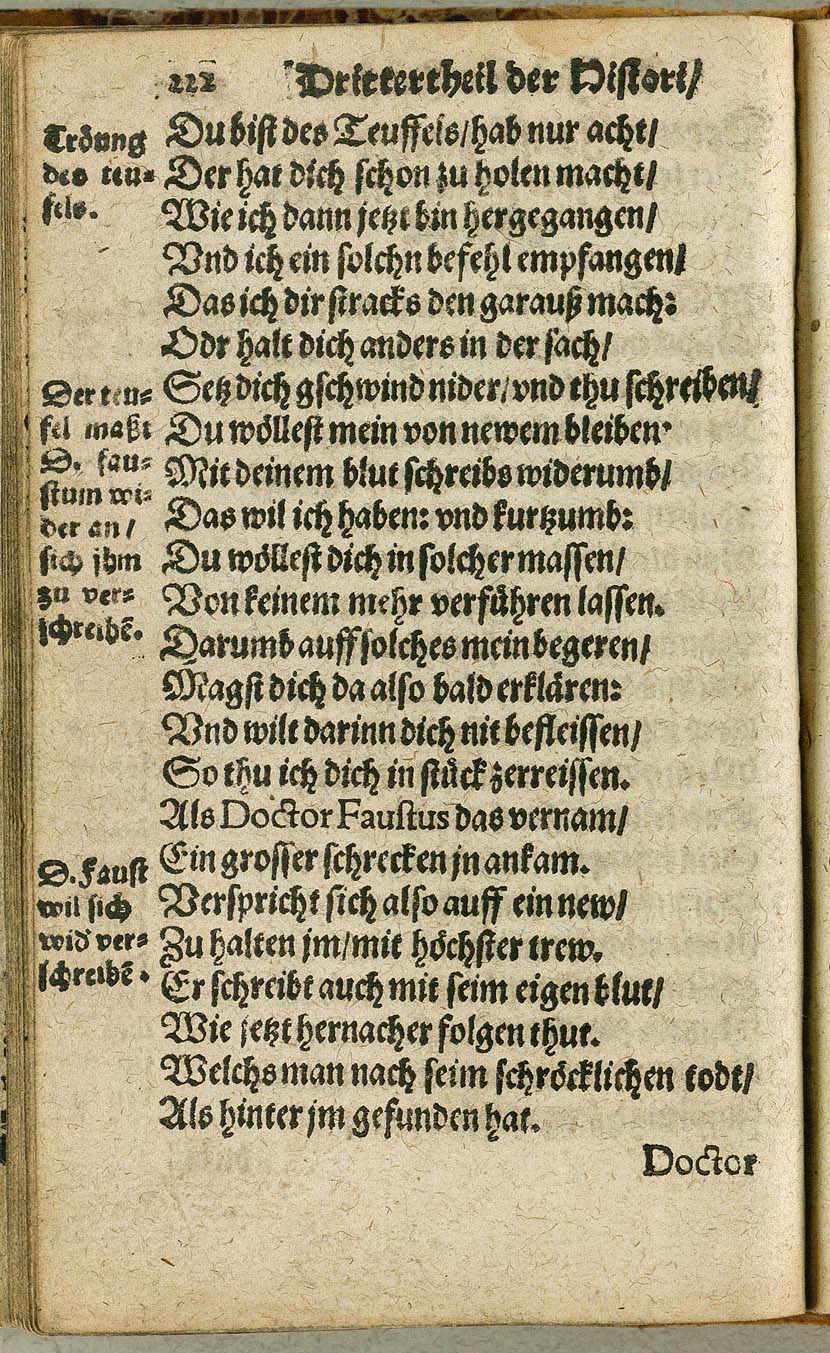 222 Dritter theil der Histori/
Tröung
des teu-
fels.
Du bist des Teuffels/hab nur acht/
Der hat dich schon zu holen macht/
Wie ich dann jetzt bin hergegangen/
Vnd ich ein solchn befehl empfangen/
Das ich dir stracks den garauß mach:
Odr halt dich anders in der sach/
Der teu-
fel maßt
D. fau-
stum wi-
der an/
sich jhm
zu ver-
schreibē.
Setz dich gschwind nider/vnd thu schreiben/
Du wöllest mein von newem bleiben
Mit deinem blut schreibs widerumb/
Das wil ich haben: vnd kurtzumb:
Du wöllest dich in solcher massen/
Von keinem mehr verführen lassen.
Darumb auff solches mein begeren/
Magst dich da also bald erklären:
Vnd wilt darinn dich nit befleissen/
So thu ich dich in stück zerreissen.
Als Doctor Faustus das vernam/
D. Faust
wil sich
wid̕ ver-
schreibē.
Ein grosser schrecken jn ankam.
Verspricht sich also auff ein new/
Zu halten jm/mit höchster trew.
Er schreibt auch mit seim eigen blut/
Wie jetzt hernacher folgen thut.
Welchs man nach seim schröcklichen todt/
Als hinter jm gefunden hat.
Doctor